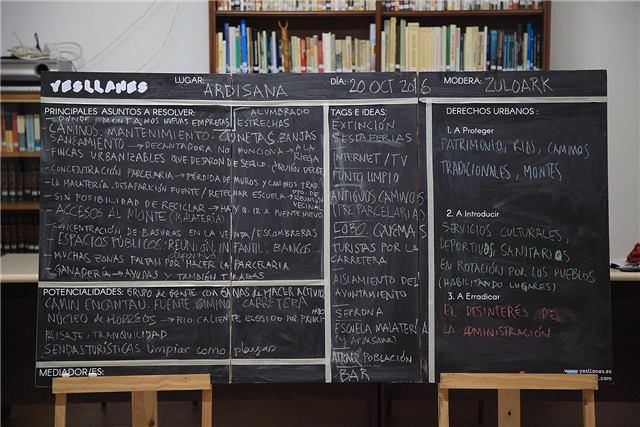 YESLLANES
LUGAR: ARDISANA
DÍA: 20 OCT 2016
MODERA: ZULOARK
PRINCIPALES ASUNTOS A RESOLVER: ALUMBRADO
DONDE MONTAMOS NUEVAS EMPRESAS ESTRECHAS
CAMINOS, MANTENIMIENTO CUNETAS ZANJAS
SANEAMIENTO → DECANTADORA NO FUNCIONA → A LA RIEGA
FINCAS URBANIZABLES QUE DEJARON DE SERLO
CONCENTRACIÓN PARCELARIA → PÉRDIDA DE MUROS Y CAMINOS TRAD.
LA MALATERÍA. DESAPARICIÓN FUENTE / RETECHAR ESCUELA → PTO. DE REUNIÓN VECINAL
SIN POSIBILIDAD DE RECICLAR → HAY Q. IR A PUENTE NUEVO
ACCESOS AL MONTE (MALATERÍA)
CONCENTRACIÓN DE BASURAS EN LA VENTA / ESCOMBRERAS
ESPACIOS PÚBLICOS: REUNIÓN, INFANTIL, BANCOS...
DEPORTIVO
MUCHAS ZONAS FALTAN POR HACER LA PARCELARIA
GANADERÍA → AYUDAS Y TAMBIÉN TRABAS
POTENCIALIDADES: GRUPO DE GENTE CON GANAS DE HACER ACTIVO
CAMÍN ENCANTAU. FUENTE. CAMINO CARRETERA
NÚCLEO DE HÓRREOS → RÍO CALIENTE ELEGIDO POR
PAISAJE, TRANQUILIDAD
SENDAS TURÍSTICAS limpiar como playas
MEDIADOR/ES:
TAGS E IDEAS:
EXTINCIÓN
SESTAFERIAS
INTERNET / TV
PUNTO LIMPIO
ANTIGUOS CAMINOS
(PRE PARCELARIA)
LOBO. QUEMAS
TURISTAS POR LA
CARRETERA
AISLAMIENTO DEL
AYUNTAMIENTO
SEPRONA
ESCUELA MALATERÍA
(Y ARDISANA)
ATRAER POBLACIÓN
BAR
DERECHOS URBANOS:
1. A Proteger
PATRIMONIO, RÍOS, CAMINOS
TRADICIONALES, MONTES
2. A Introducir
SERVICIOS CULTURALES,
DEPORTIVOS, SANITARIOS
EN ROTACIÓN POR LOS PUEBLOS
(HABILITANDO LUGARES)
3. A Erradicar
EL DESINTERÉS DE
LA ADMINISTRACIÓN
www.yesllanes.es